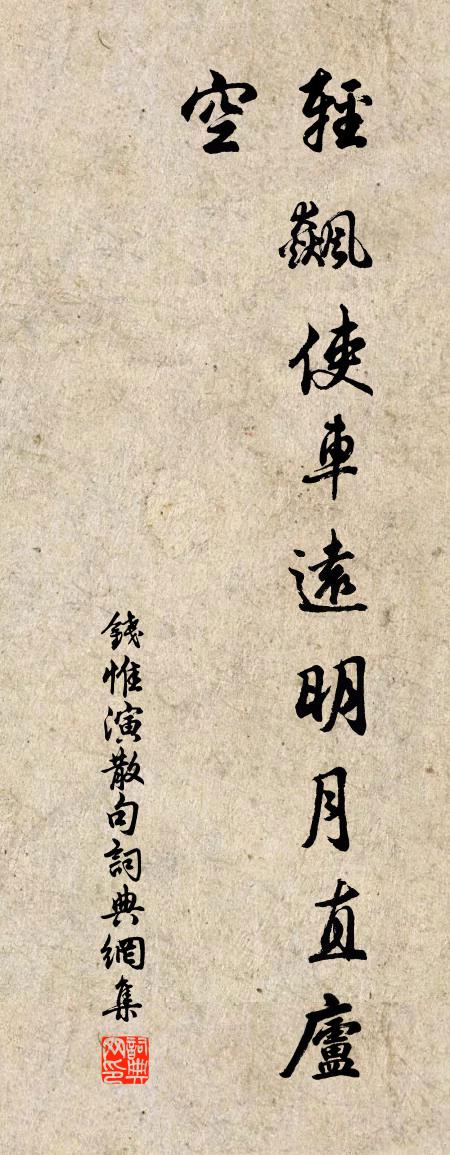 輕飆使車遠明月直廬
空
錢惟演散句詞典網集
詞典網印